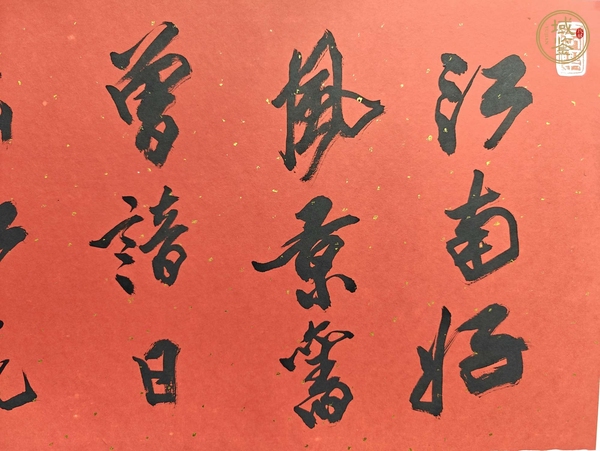 江南好
風景舊
曾諳日